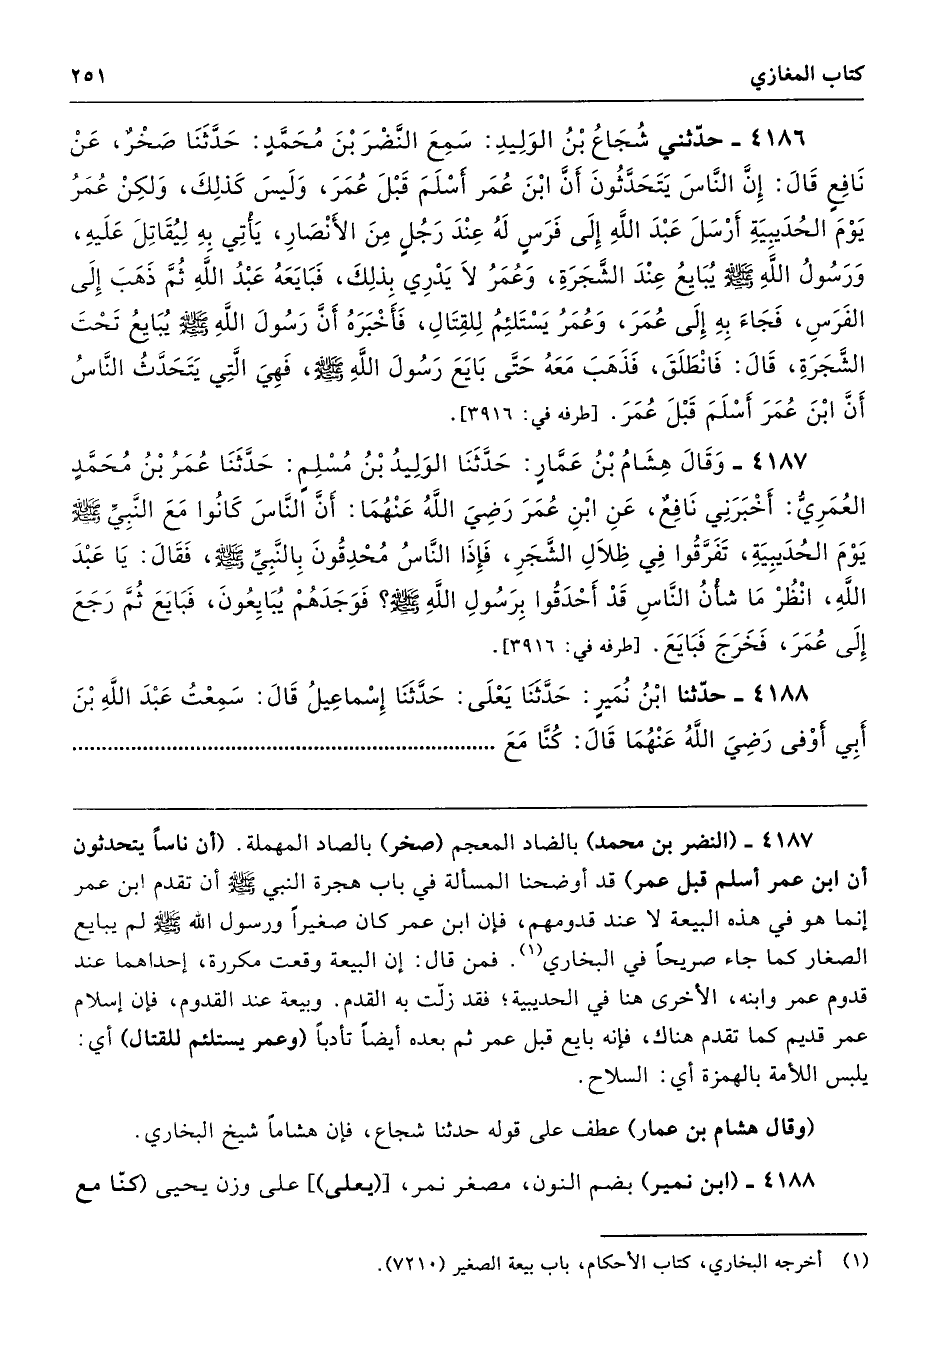 كتاب المغازي ٢٥١
٤١٨٦ ـ حدّثني شُجَاعُ بْنُ الوَلِيدِ: سَمِعَ النَّضْرَ بْنَ مُحَمَّدٍ: حَدَّثَنَا صَخْرٌ، عَنْ
نَافِعٍ قَالَ: إِنَّ النَّاسَ يَتَحَدَّثُونَ أَنَّ ابْنَ عُمَر أَسْلَمَ قَبْلَ عُمَرَ، وَلَيسَ كَذلِكَ، وَلكِنْ عُمَرُ
يَوْمَ الحُدَيبِيَةِ أَرْسَلَ عَبْدَ اللَّهِ إِلَى فَرَسٍ لَهُ عِنْدَ رَجُلٍ مِنَ الأَنْصَارِ، يَأْتِي بِهِ لِيُقَاتِلَ عَلَيهِ،
وَرَسُولُ اللَّهِ ﷺ يُبَايعُ عِنْدَ الشَّجَرَةِ، وَعُمَرُ لاَ يَدْرِي بِذلِكَ، فَبَايَعَهُ عَبْدُ اللَّهِ ثُمَّ ذَهَبَ إِلَى
الفَرَسِ، فَجَاءَ بِهِ إِلَى عُمَرَ، وَعُمَرُ يَسْتَلئِمُ لِلقِتَالِ، فَأَخْبَرَهُ أَنَّ رَسُولَ اللَّهِ ﷺ يُبَايعُ تَحْتَ
الشَّجَرَةِ، قَالَ: فَانْطَلَقَ، فَذَهَبَ مَعَهُ حَتَّى بَايَعَ رَسُولَ اللَّهِ ﷺ، فَهِيَ الَّتِي يَتَحَدَّثُ النَّاسُ
أَنَّ ابْنَ عُمَرَ أَسْلَمَ قَبْلَ عُمَرَ. [طرفه في: ٣٩١٦].
٤١٨٧ ـ وَقَالَ هِشَامُ بْنُ عَمَّارٍ: حَدَّثَنَا الوَلِيدُ بْنُ مُسْلِمٍ: حَدَّثَنَا عُمَرُ بْنُ مُحَمَّدٍ
العُمَرِيُّ: أَخْبَرَنِي نَافِعٌ، عَنِ ابْنِ عُمَرَ رَضِيَ اللَّهُ عَنْهُمَا: أَنَّ النَّاسَ كَانُوا مَعَ النَّبِيِّ ﷺ
يَوْمَ الحُدَيبِيَةِ، تَفَرَّقُوا فِي ظِلاَلِ الشَّجَرِ، فَإِذَا النَّاسُ مُحْدِقُونَ بِالنَّبِيِّ ﷺ، فَقَالَ: يَا عَبْدَ
اللَّهِ، انْظُرْ مَا شأْنُ النَّاسِ قَدْ أَحْدَقُوا بِرَسُولِ اللَّهِ ﷺ؟ فَوَجَدَهُمْ يُبَايِعُونَ، فَبَايَعَ ثُمَّ رَجَعَ
إِلَى عُمَرَ، فَخَرَجَ فَبَايَعَ. [طرفه في: ٣٩١٦].
٤١٨٨ ـ حدّثنا ابْنُ نُمَيرٍ: حَدَّثَنَا يَعْلَى: حَدَّثَنَا إِسْماعِيلُ قَالَ: سَمِعْتُ عَبْدَ اللَّهِ بْنَ
أَبِي أَوْفى رَضِيَ اللَّهُ عَنْهُمَا قَالَ: كُنَّا مَعَ ................................................................
٤١٨٧ ـ (النضر بن محمد) بالضاد المعجم (صخر) بالصاد المهملة. (أن ناساً يتحدثون
أن ابن عمر أسلم قبل عمر) قد أوضحنا المسألة في باب هجرة النبي ﷺ أن تقدم ابن عمر
إنما هو في هذه البيعة لا عند قدومهم، فإن ابن عمر كان صغيراً ورسول الله ﷺ لم يبايع
الصغار كما جاء صريحاً في البخاري(١). فمن قال: إن البيعة وقعت مكررة، إحداهما عند
قدوم عمر وابنه، الأخرى هنا في الحديبية؛ فقد زلّت به القدم. وبيعة عند القدوم، فإن إسلام
عمر قديم كما تقدم هناك، فإنه بايع قبل عمر ثم بعده أيضاً تأدباً (وعمر يستلئم للقتال) أي:
يلبس اللأمة بالهمزة أي: السلاح.
(وقال هشام بن عمار) عطف على قوله حدثنا شجاع، فإن هشاماً شيخ البخاري.
٤١٨٨ ـ (ابن نمير) بضم النون، مصغر نمر، [(يعلى)] على وزن يحيى (كنّا مع
(١) أخرجه البخاري، كتاب الأحكام، باب بيعة الصغير (٧٢١٠).